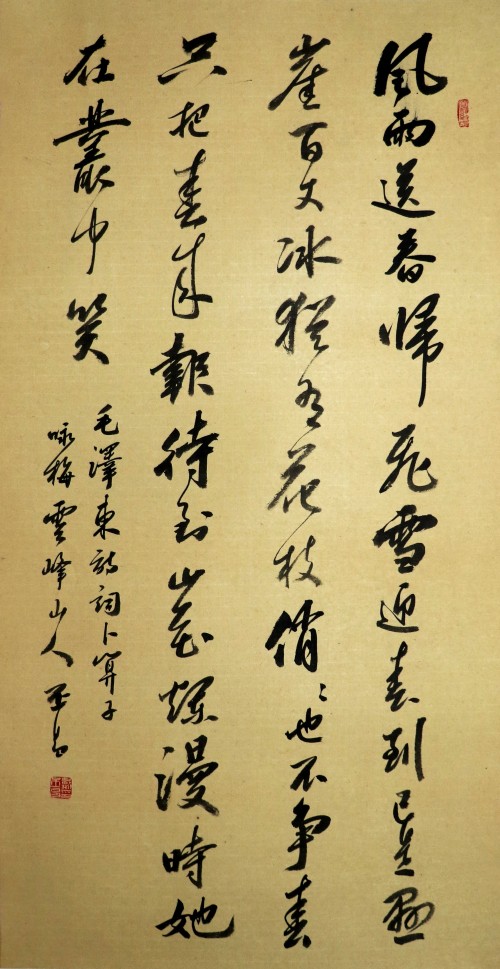 風雨送春歸飛雪迎春到已是懸
崖百丈冰猶有花枝俏〻也不爭春
只把春來報待到山花爛漫時她
在叢中笑
毛澤東詩詞卜算子
咏梅雲峰山人